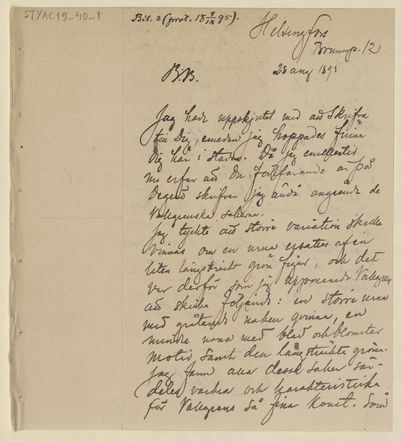 STYAC19_40_1
Bil. 3 (prot. 18 9/9 95).
Helsingfors
Brunnsp. 12
28 aug 1895
B.B.
Jag hade uppskjutit med att skrifva
till Dig, emedan jag hoppades finna
dig här i staden. Då jag emellertid
nu erfar att Du fortfarande är på
Degerö skrifver jag ändå angående de
Vallgrenska sakerna.
Jag tyckte att större variation skulle
vinnas om en urna ersattes af en
liten långsträckt grön figur, och det
var derför som jag uppmanade Vallgren
att skicka följande: en större urna
med gråtande naken qvinna, en
mindre urna med blad och blommor
motiv, samt den långsträckta gröna.
Jag fann alla dessa saker sär-
deles vackra och karakteristiska
för Vallgrens så fina konst. Som